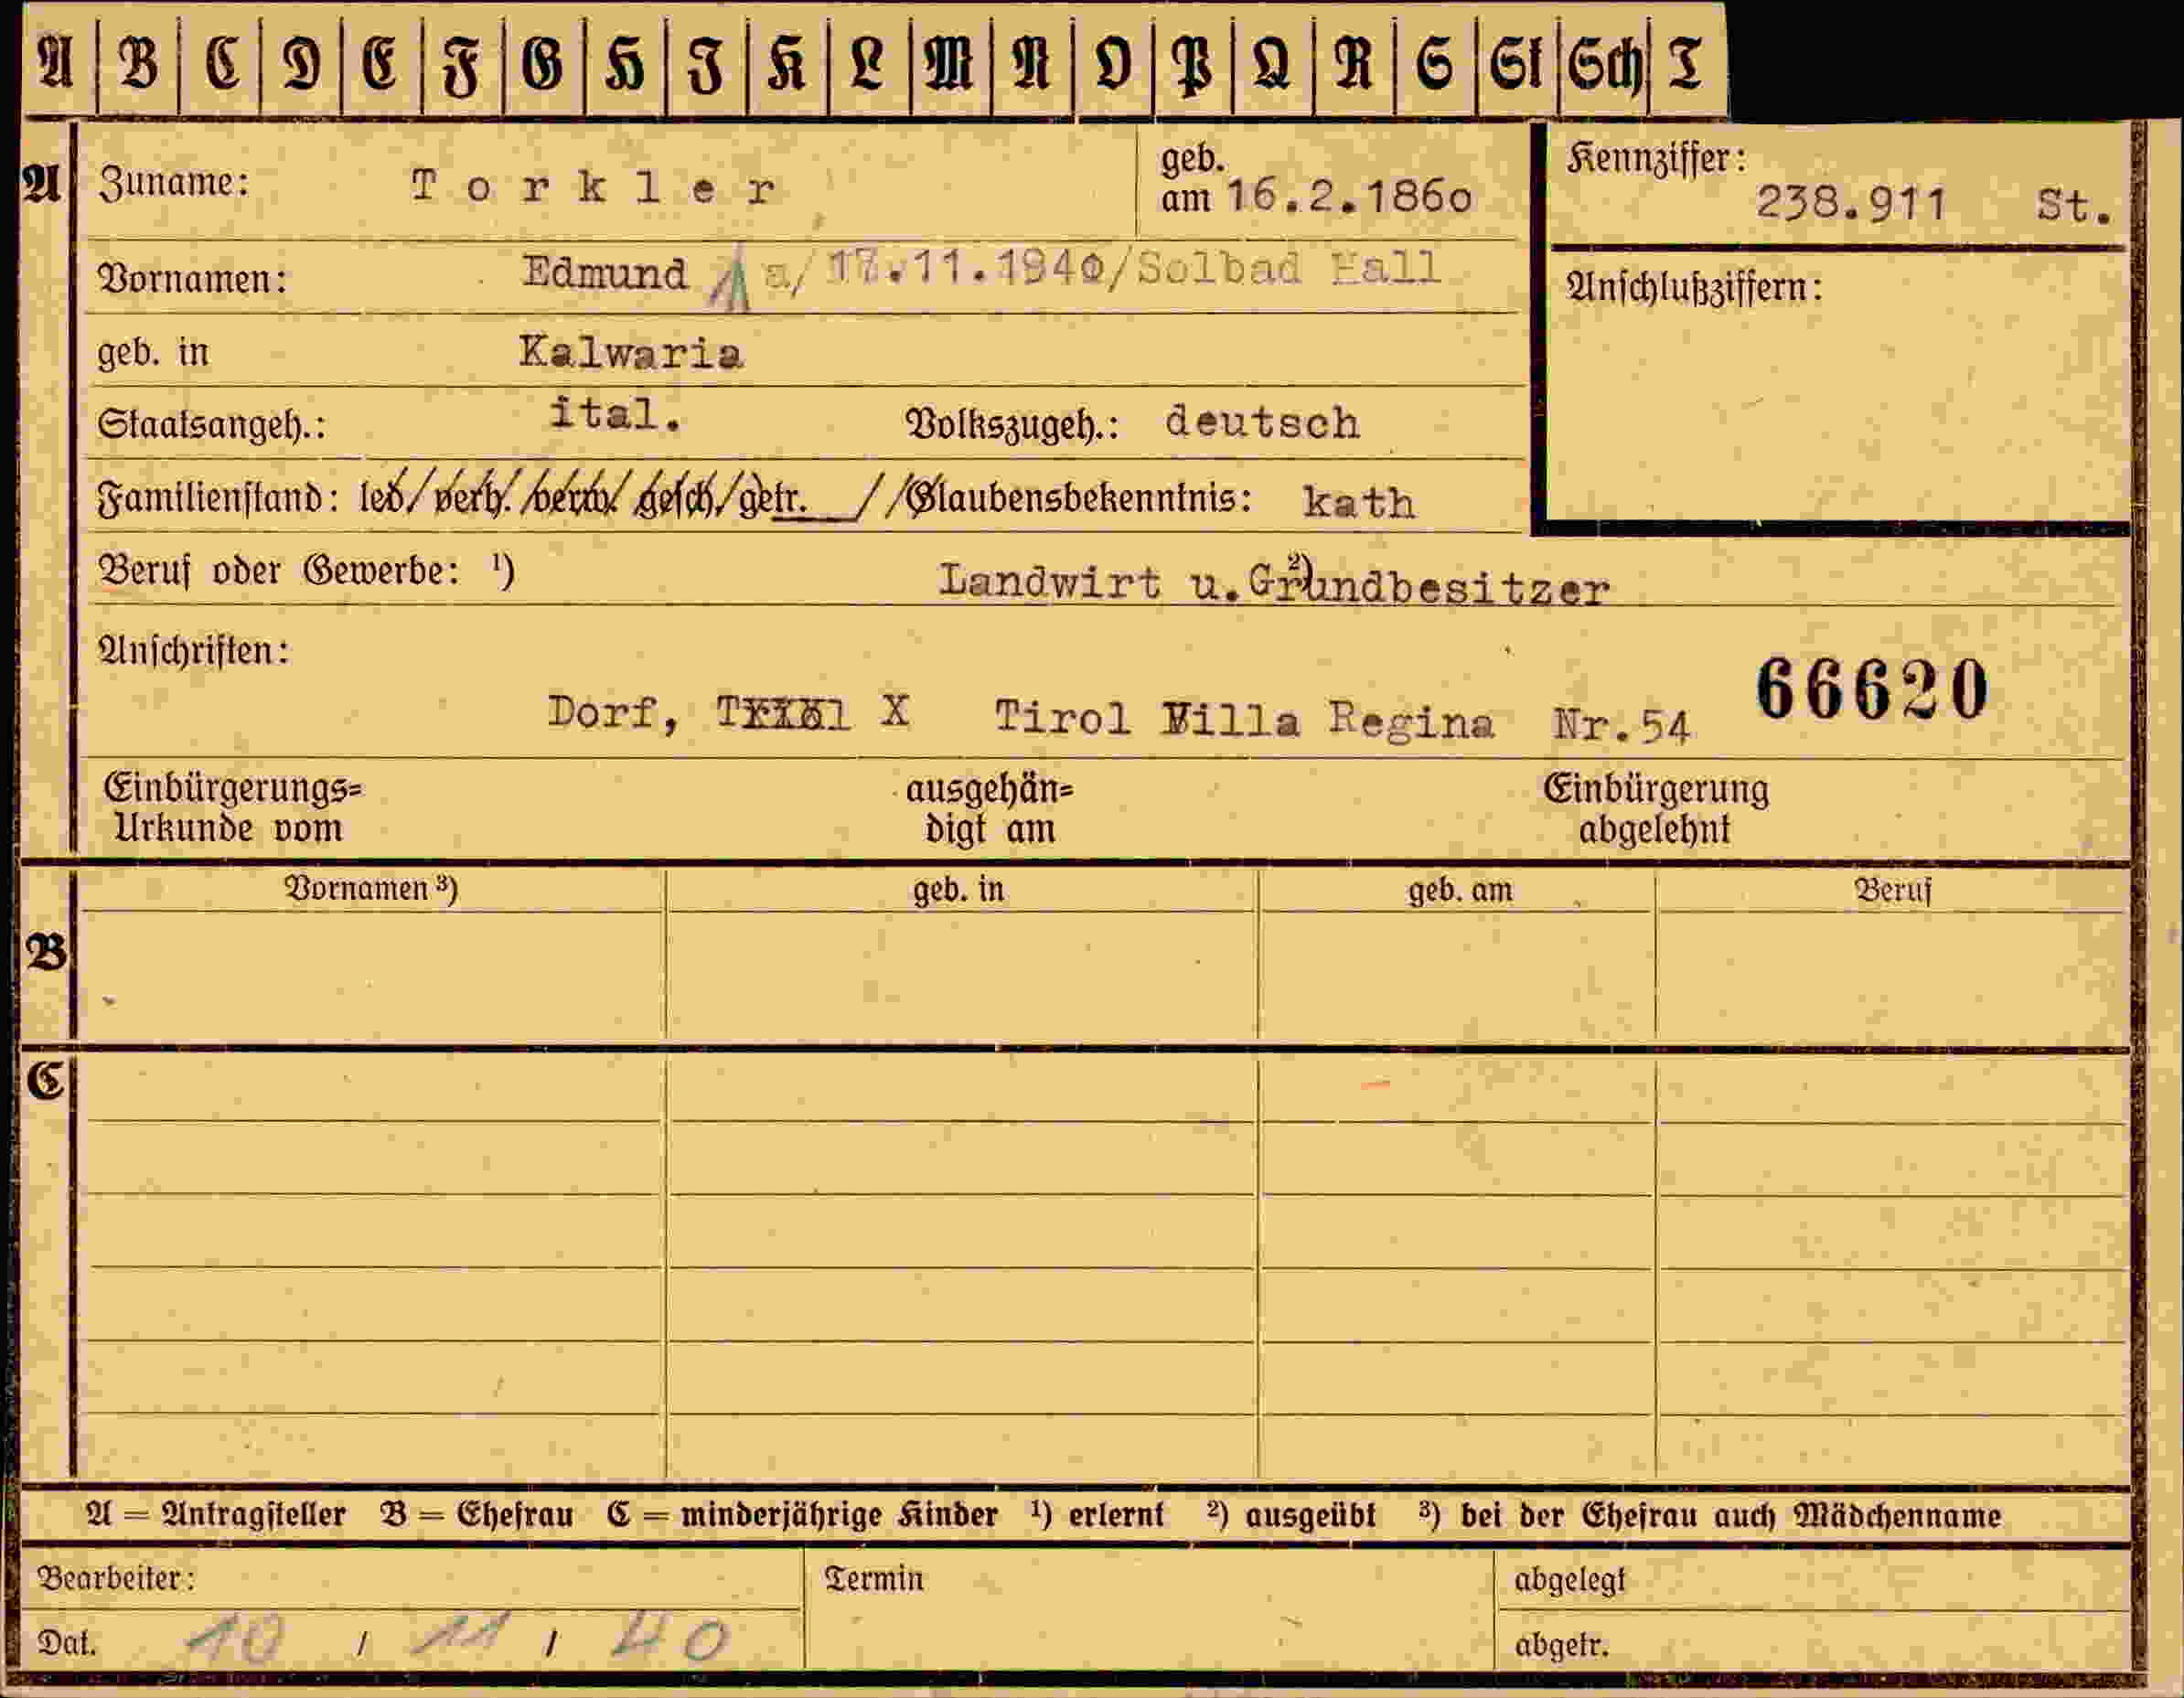 A B C D E F G H I K L M N O P Q R S St Sch T
A Zuname: Torkler geb. am 16.2.1860 Kennziffer: 238.911 St.
Vornamen: Edmund a/17.11.1940/Solbad Hall Anschlußziffern:
geb. in Kalwaria
Staatsangeh.: ital. Volkszugeh.: deutsch
Familienstand: led/verh./verw/gesch/getr. // Glaubensbekenntnis: kath
Beruf oder Gewerbe: ¹) ²) Landwirt u.Grundbesitzer
Anschriften: 66620
Dorf, X Tirol Villa Regina Nr.54
Einbürgerungs= ausgehän= Einbürgerung
Urkunde vom digt am abgelehnt
Vornamen ³) geb. in geb. am Beruf
B
C
A = Antragsteller B = Ehefrau C = minderjährige Kinder ¹) erlernt ²) ausgeübt ³) bei der Ehefrau auch Mädchenname
Bearbeiter: Termin abgelegt
Dat. 10 / 11 / 40 abgetr.